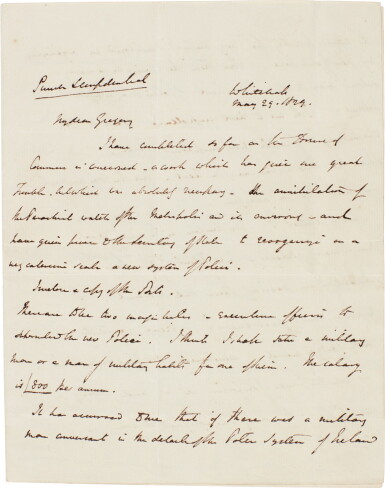 Private & Confidential
Whitehall
May 29. 1829.
My dear Gregory
I have completed so far as the House of
Commons is concerned - a work which has given me great
trouble, but which was absolutely necessary - the annihilation of
the Parochial watch of the Metropolis and its environs - and
have given power to the Secretary of State to reorganize on a
very extensive scale a new system of Police.
I enclose a copy of the Bill.
There are to be two magistrates - executive officers to
superintend the new Police. I think I shall take a military
man or a man of military habits for one officer. The salary
is £800 per annum.
It has occurred to me that if there was a military
man conversant in the details of the Police System of Ireland